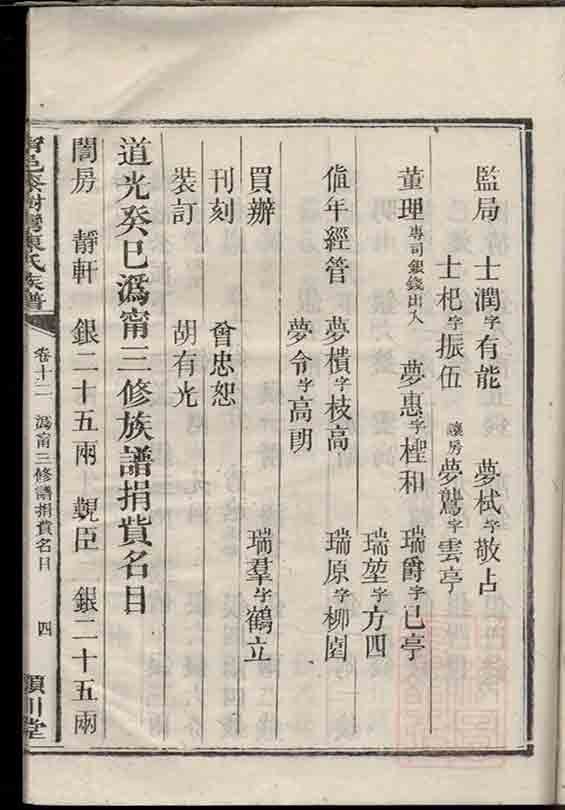 監局 士潤字有能 夢栻字敬占
士杞字振伍 讓房夢鷟字雲亭
董理專司銀錢出入 夢惠字檉和 瑞爵字已亭
瑞堃字方四
值年經管 夢樻字枝高 瑞原字柳園
夢令字高明
買辦 瑞羣字鶴立
刊刻 曾忠恕
裝訂 胡有光
道光癸巳溈甯三修族譜捐貲名目
誾房 靜軒 銀二十五兩 覲臣 銀二十五兩
陳氏族譜
卷十二 溈甯三修譜捐貲名目 四
潁川堂